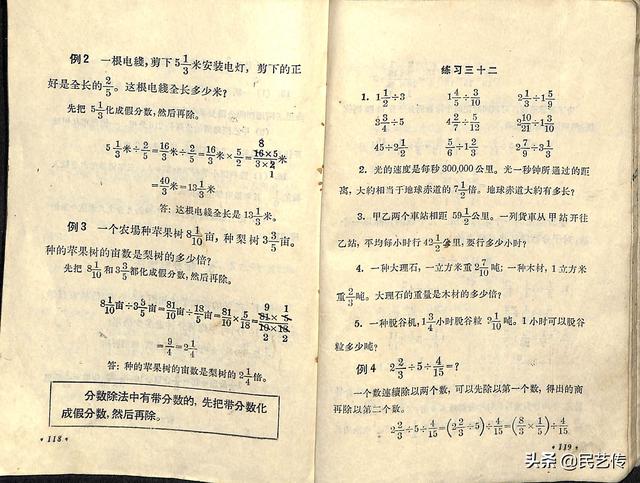 例2 一根电綫,剪下 5 1/3 米安装电灯,剪下的正
好是全长的 2/5。这根电綫全长多少米?
先把 5 1/3 化成假分数,然后再除。
5 1/3 米÷2/5=16/3 米÷2/5=16/3 米×5/2=(16×5)/(3×2) 米
8
1
=40/3 米=13 1/3 米
答: 这根电綫全长是 13 1/3 米。
例3 一个农場种苹果树 8 1/10 亩,种梨树 3 3/5 亩。
种的苹果树的亩数是梨树的多少倍?
先把 8 1/10 和 3 3/5 都化成假分数,然后再除。
8 1/10 亩÷3 3/5 亩=81/10 亩÷18/5 亩=81/10×5/18=(81×5)/(10×18)
9 1
2 2
=9/4=2 1/4
答: 种的苹果树的亩数是梨树的 2 1/4 倍。
分数除法中有带分数的,先把带分数化
成假分数,然后再除。
·118·
练习三十二
1. 1 1/2÷3 1 4/5÷3/10 2 1/3÷1 5/9
3 3/4÷5 4 2/7÷5/12 2 10/21÷1 3/10
45÷2 1/2 5/6÷1 2/3 2 7/9÷3 1/3
2. 光的速度是每秒 300,000 公里。光一秒钟所通过的距
离,大約相当于地球赤道的 7 1/2 倍。地球赤道大約有多长?
3. 甲乙两个車站相距 59 1/2 公里。一列貨車从甲站开往
乙站,平均每小时行 42 1/2 公里,要行多少小时?
4. 一种大理石,一立方米重 2 7/10 吨;一种木材,1 立方米
重 2/3 吨。大理石的重量是木材的多少倍?
5. 一种脱谷机,1 3/4 小时脱谷粒 9 1/10 吨。1 小时可以脱谷
粒多少吨?
例4 2 2/3÷5÷4/15=?
一个数連續除以两个数,可以先除以第一个数,得出的商
再除以第二个数。
2 2/3÷5÷4/15=(2 2/3÷5)÷4/15=(8/3×1/5)÷4/15
·119·
头条 @民艺传